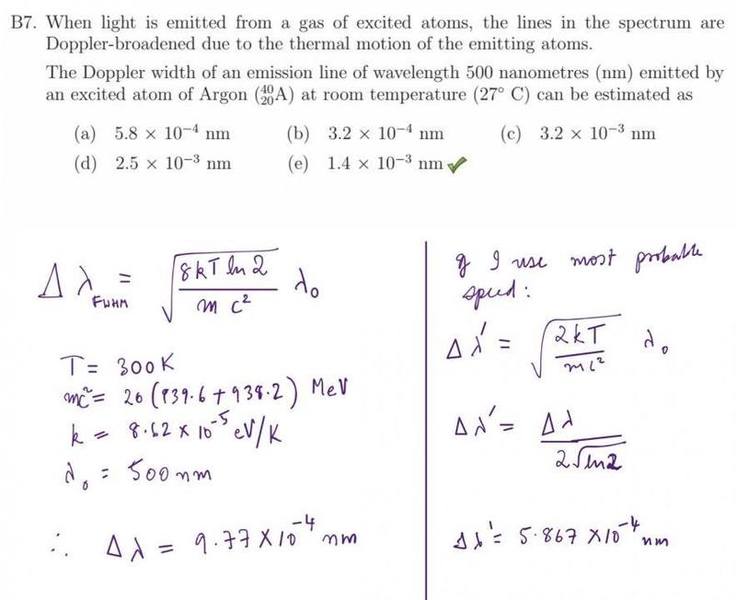 B7. When light is emitted from a gas of excited atoms, the lines in the spectrum are
Doppler-broadened due to the thermal motion of the emitting atoms.
The Doppler width of an emission line of wavelength 500 nanometres (nm) emitted by
an excited atom of Argon (⁴⁰₂₀A) at room temperature (27° C) can be estimated as
(a) 5.8 × 10⁻⁴ nm (b) 3.2 × 10⁻⁴ nm (c) 3.2 × 10⁻³ nm
(d) 2.5 × 10⁻³ nm (e) 1.4 × 10⁻³ nm ✓
Δλ_FWHM = √(8kT ln 2 / m c²) λ₀
T = 300 K
mc² = 20 (939.6 + 938.2) MeV
k = 8.62 × 10⁻⁵ eV/K
λ₀ = 500 nm
∴ Δλ = 9.77 × 10⁻⁴ nm
If I use most probable
speed:
Δλ' = √(2kT / mc²) λ₀
Δλ' = Δλ / 2√ln2
Δλ' = 5.867 × 10⁻⁴ nm